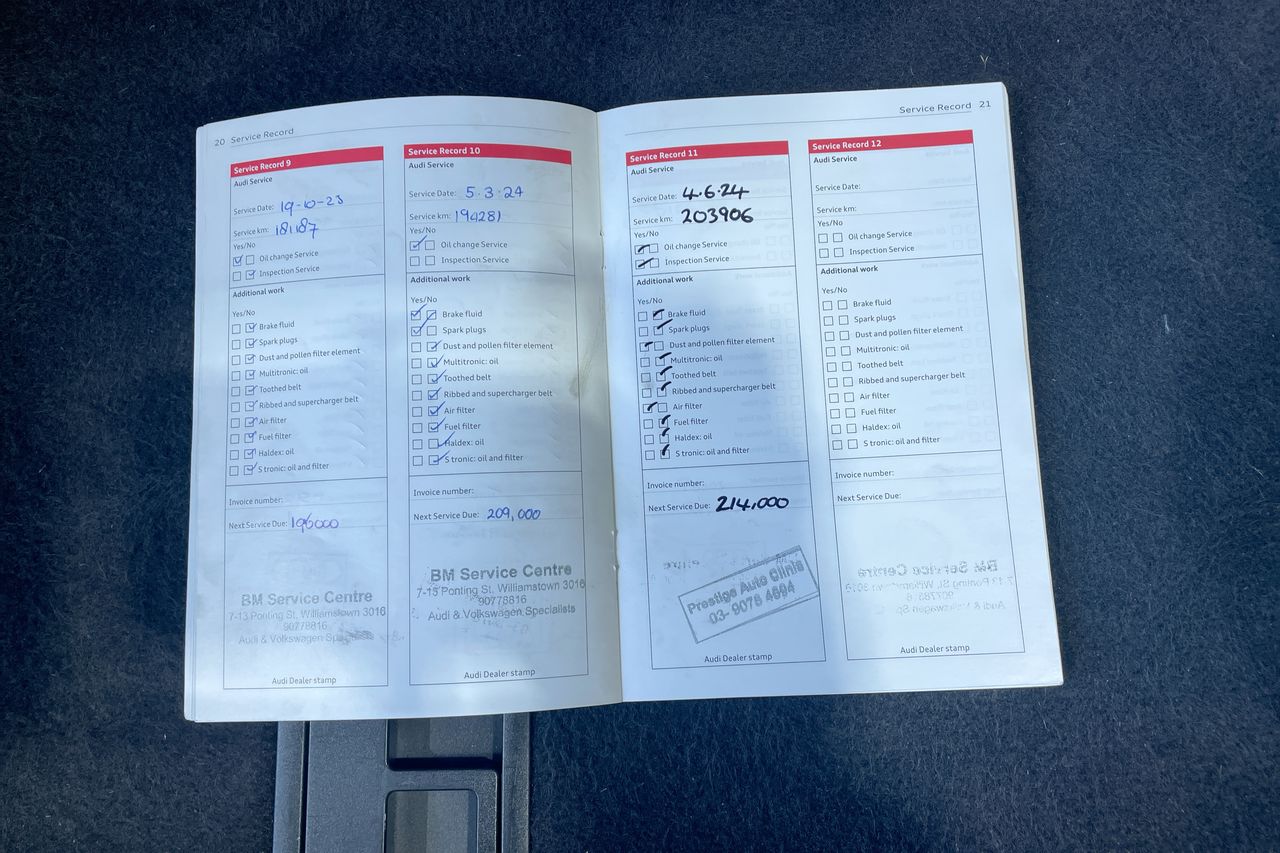 20 Service Record
Service Record 9
Audi Service
Service Date: 19-10-23
Service km: 181187
Yes/No
Oil change Service
Inspection Service
Additional work
Yes/No
Brake fluid
Spark plugs
Dust and pollen filter element
Multitronic: oil
Toothed belt
Ribbed and supercharger belt
Air filter
Fuel filter
Haldex: oil
S tronic: oil and filter
Invoice number:
Next Service Due: 196000
BM Service Centre
7-13 Ponting St, Williamstown 3016
90778816
Audi & Volkswagen
Audi Dealer stamp
Service Record 10
Audi Service
Service Date: 5·3·24
Service km: 194281
Yes/No
Oil change Service
Inspection Service
Additional work
Yes/No
Brake fluid
Spark plugs
Dust and pollen filter element
Multitronic: oil
Toothed belt
Ribbed and supercharger belt
Air filter
Fuel filter
Haldex: oil
S tronic: oil and filter
Invoice number:
Next Service Due: 209,000
BM Service Centre
7-13 Ponting St, Williamstown 3016
90778816
Audi & Volkswagen Specialists
Audi Dealer stamp
Service Record 21
Service Record 11
Audi Service
Service Date: 4·6·24
Service km: 203906
Yes/No
Oil change Service
Inspection Service
Additional work
Yes/No
Brake fluid
Spark plugs
Dust and pollen filter element
Multitronic: oil
Toothed belt
Ribbed and supercharger belt
Air filter
Fuel filter
Haldex: oil
S tronic: oil and filter
Invoice number:
Next Service Due: 214,000
Prestige Auto Clinic
03- 9078 4694
Audi Dealer stamp
Service Record 12
Audi Service
Service Date:
Service km:
Yes/No
Oil change Service
Inspection Service
Additional work
Yes/No
Brake fluid
Spark plugs
Dust and pollen filter element
Multitronic: oil
Toothed belt
Ribbed and supercharger belt
Air filter
Fuel filter
Haldex: oil
S tronic: oil and filter
Invoice number:
Next Service Due:
Audi Dealer stamp